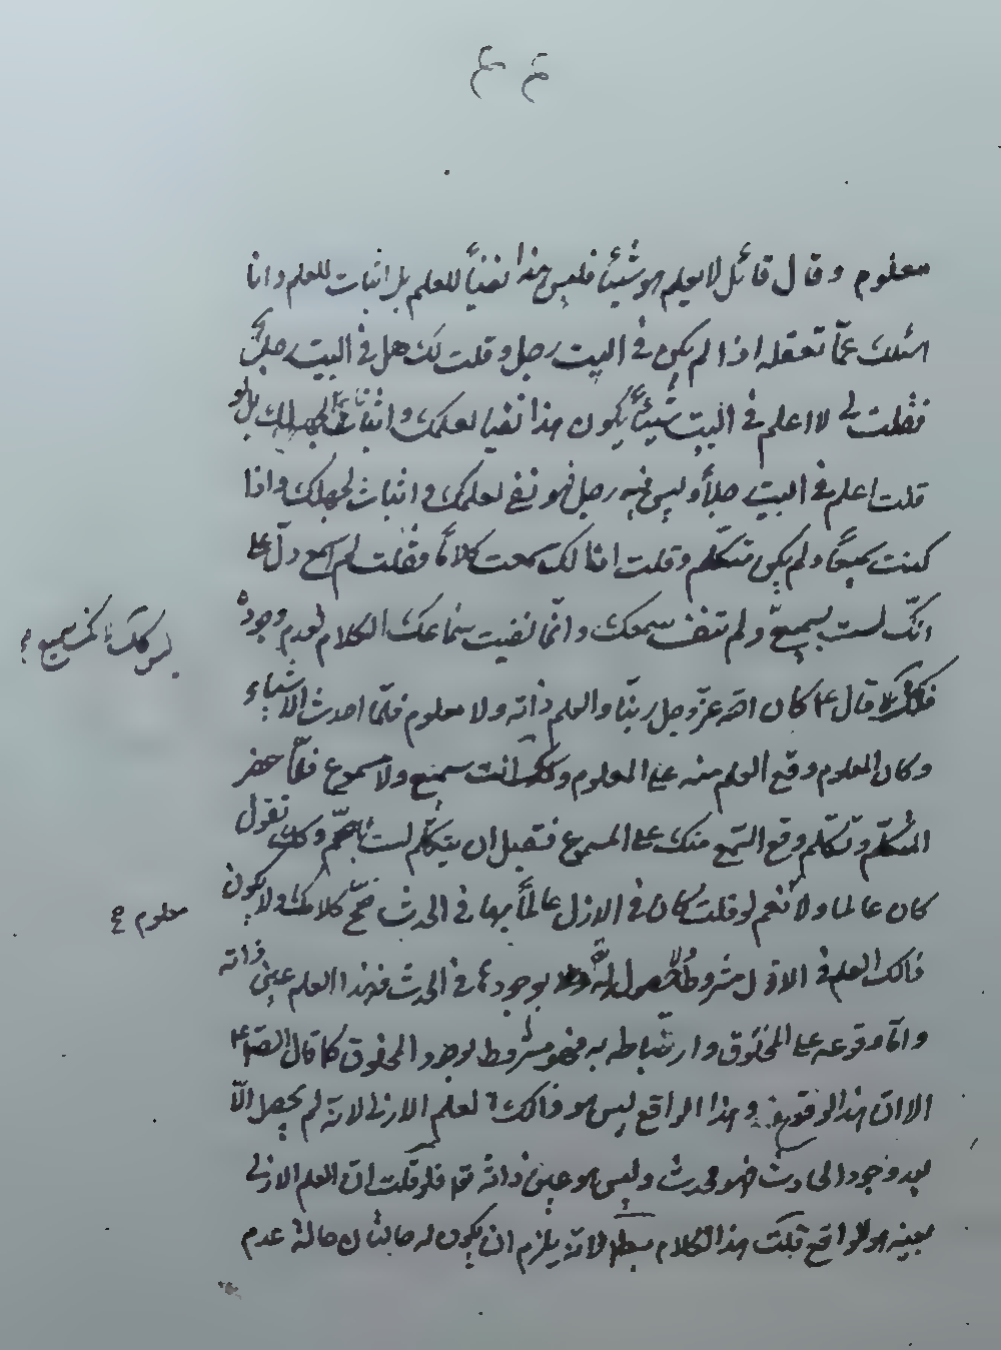 معلوم وقال قائل لا يعلم هو شيئاً فليس هذا نفياً للعلم بل اثبات للعلم وانا
اسئلك عمّا تعقله اذا لم يكن في البيت رجل وقلت لك هل في البيت رجل
فقلت لي لا اعلم في البيت شيئاً يكون هذا نفيا لعلمك و اثباتاً لجهلك بل لو
قلت اعلم في البيت رجلاً وليس فيه رجل فهو نفي لعلمك و اثبات لجهلك واذا
كنت سميعًا ولم يكن متكلم وقلت انا لك سمعت كلاما فقلت لم اسمع دلّ على
انّك لست بسميع ولم تنف سمعك وانّما نفيت سماعك الكلام لعدم وجوده
قال ع كان الله عز وجل ربنا والعلم ذاته ولا معلوم فلمّا احدث الاشياء
وكان المعلوم وقع العلم منه على المعلوم وكك انت سميع ولا مسموع فلمّا حضر
المتكلم وتكلم وقع السمع منك على المسموع فقبل ان يتكلم لست باصمّ وكك نقول
كان عالما ولا نعم لو قلت كان في الازل عالماً بها في الحدث صحّ كلامك ولا يكون
ذالك العلم في الازل مشروطا بوجودها في الحدث فهذا العلم عين ذاته
وامّا وقوعه على المخلوق وارتباطه به فهو مشروط بوجود المخلوق كما قال الصّ ع
الا انّ هذا الوقوع وهذا الواقع ليس هو ذالك العلم الازلي لانه لم يحصل الّا
بعد وجود الحادث فهو محدث وليس هو عين ذاته تع فلو قلت انّ العلم الازلي
بعينه هو الواقع قلت هذا الكلام بط لانه يلزم ان يكون له حالتان حالة عدم
معلوم